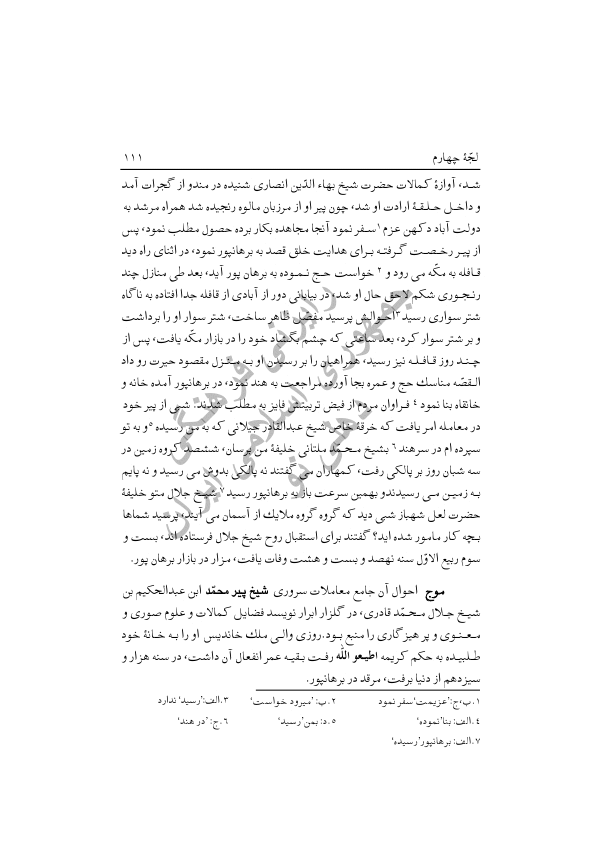 لجّهٔ چهارم ۱۱۱
شد، آوازهٔ کمالات حضرت شیخ بهاء الدّین انصاری شنیده در مندو از گجرات آمد
و داخل حلقهٔ ارادت او شد، چون پیر او از مرزبان مالوه رنجیده شد همراه مرشد به
دولت آباد دکهن عزم ۱سفر نمود آنجا مجاهده بکار برده حصول مطلب نمود، پس
از پیر رخصت گرفته برای هدایت خلق قصد به برهانپور نمود، در اثنای راه دید
قافله به مکّه می رود و ۲ خواست حج نموده به برهان پور آید، بعد طی منازل چند
رنجوری شکم لاحق حال او شد، در بیابانی دور از آبادی از قافله جدا افتاده به ناگاه
شتر سواری رسید۳احوالش پرسید مفصّل ظاهر ساخت، شتر سوار او را برداشت
و بر شتر سوار کرد، بعد ساعتی که چشم بگشاد خود را در بازار مکّه یافت، پس از
چند روز قافله نیز رسید، همراهیان را بر رسیدن او به منزل مقصود حیرت رو داد
القصّه مناسک حج و عمره بجا آورده مراجعت به هند نمود، در برهانپور آمده خانه و
خانقاه بنا نمود ٤ فراوان مردم از فیض تربیتش فایز به مطلب شدند. شبی از پیر خود
در معامله امر یافت که خرقهٔ خاص شیخ عبدالقادر جیلانی که به من رسیده ٥و به تو
سپرده ام در سرهند ٦ بشیخ محمّد ملتانی خلیفهٔ من برسان، ششصد کروه زمین در
سه شبان روز بر پالکی رفت، کمهاران می گفتند نه پالکی بدوش می رسید و نه پایم
به زمین می رسیدندو بهمین سرعت باز به برهانپور رسید۷ شیخ جلال متو خلیفهٔ
حضرت لعل شهباز شبی دید که گروه گروه ملایک از آسمان می آیند، پرسید شماها
بچه کار مامور شده اید؟ گفتند برای استقبال روح شیخ جلال فرستاده اند، بست و
سوم ربیع الاوّل سنه نهصد و بست و هشت وفات یافت، مزار در بازار برهان پور.
موج احوال آن جامع معاملات سروری شیخ پیر محمّد ابن عبدالحکیم بن
شیخ جلال محمّد قادری، در گلزار ابرار نویسد فضایل کمالات و علوم صوری و
معنوی و پرهیزگاری را منبع بود.روزی والی ملک خاندیس او را به خانهٔ خود
طلبیده به حکم کریمه اطیعو اللّه رفت بقیه عمر انفعال آن داشت، در سنه هزار و
سیزدهم از دنیا برفت، مرقد در برهانپور.
۱.ب،ج:‘عزیمت’سفر نمود ۲.ب: ‘میرود خواست’ ۳.الف:‘رسید’ ندارد
٤.الف: بنا‘نموده’ ٥.د: بمن‘رسید’ ٦.ج: ‘در هند’
۷.الف: برهانپور‘رسیده’